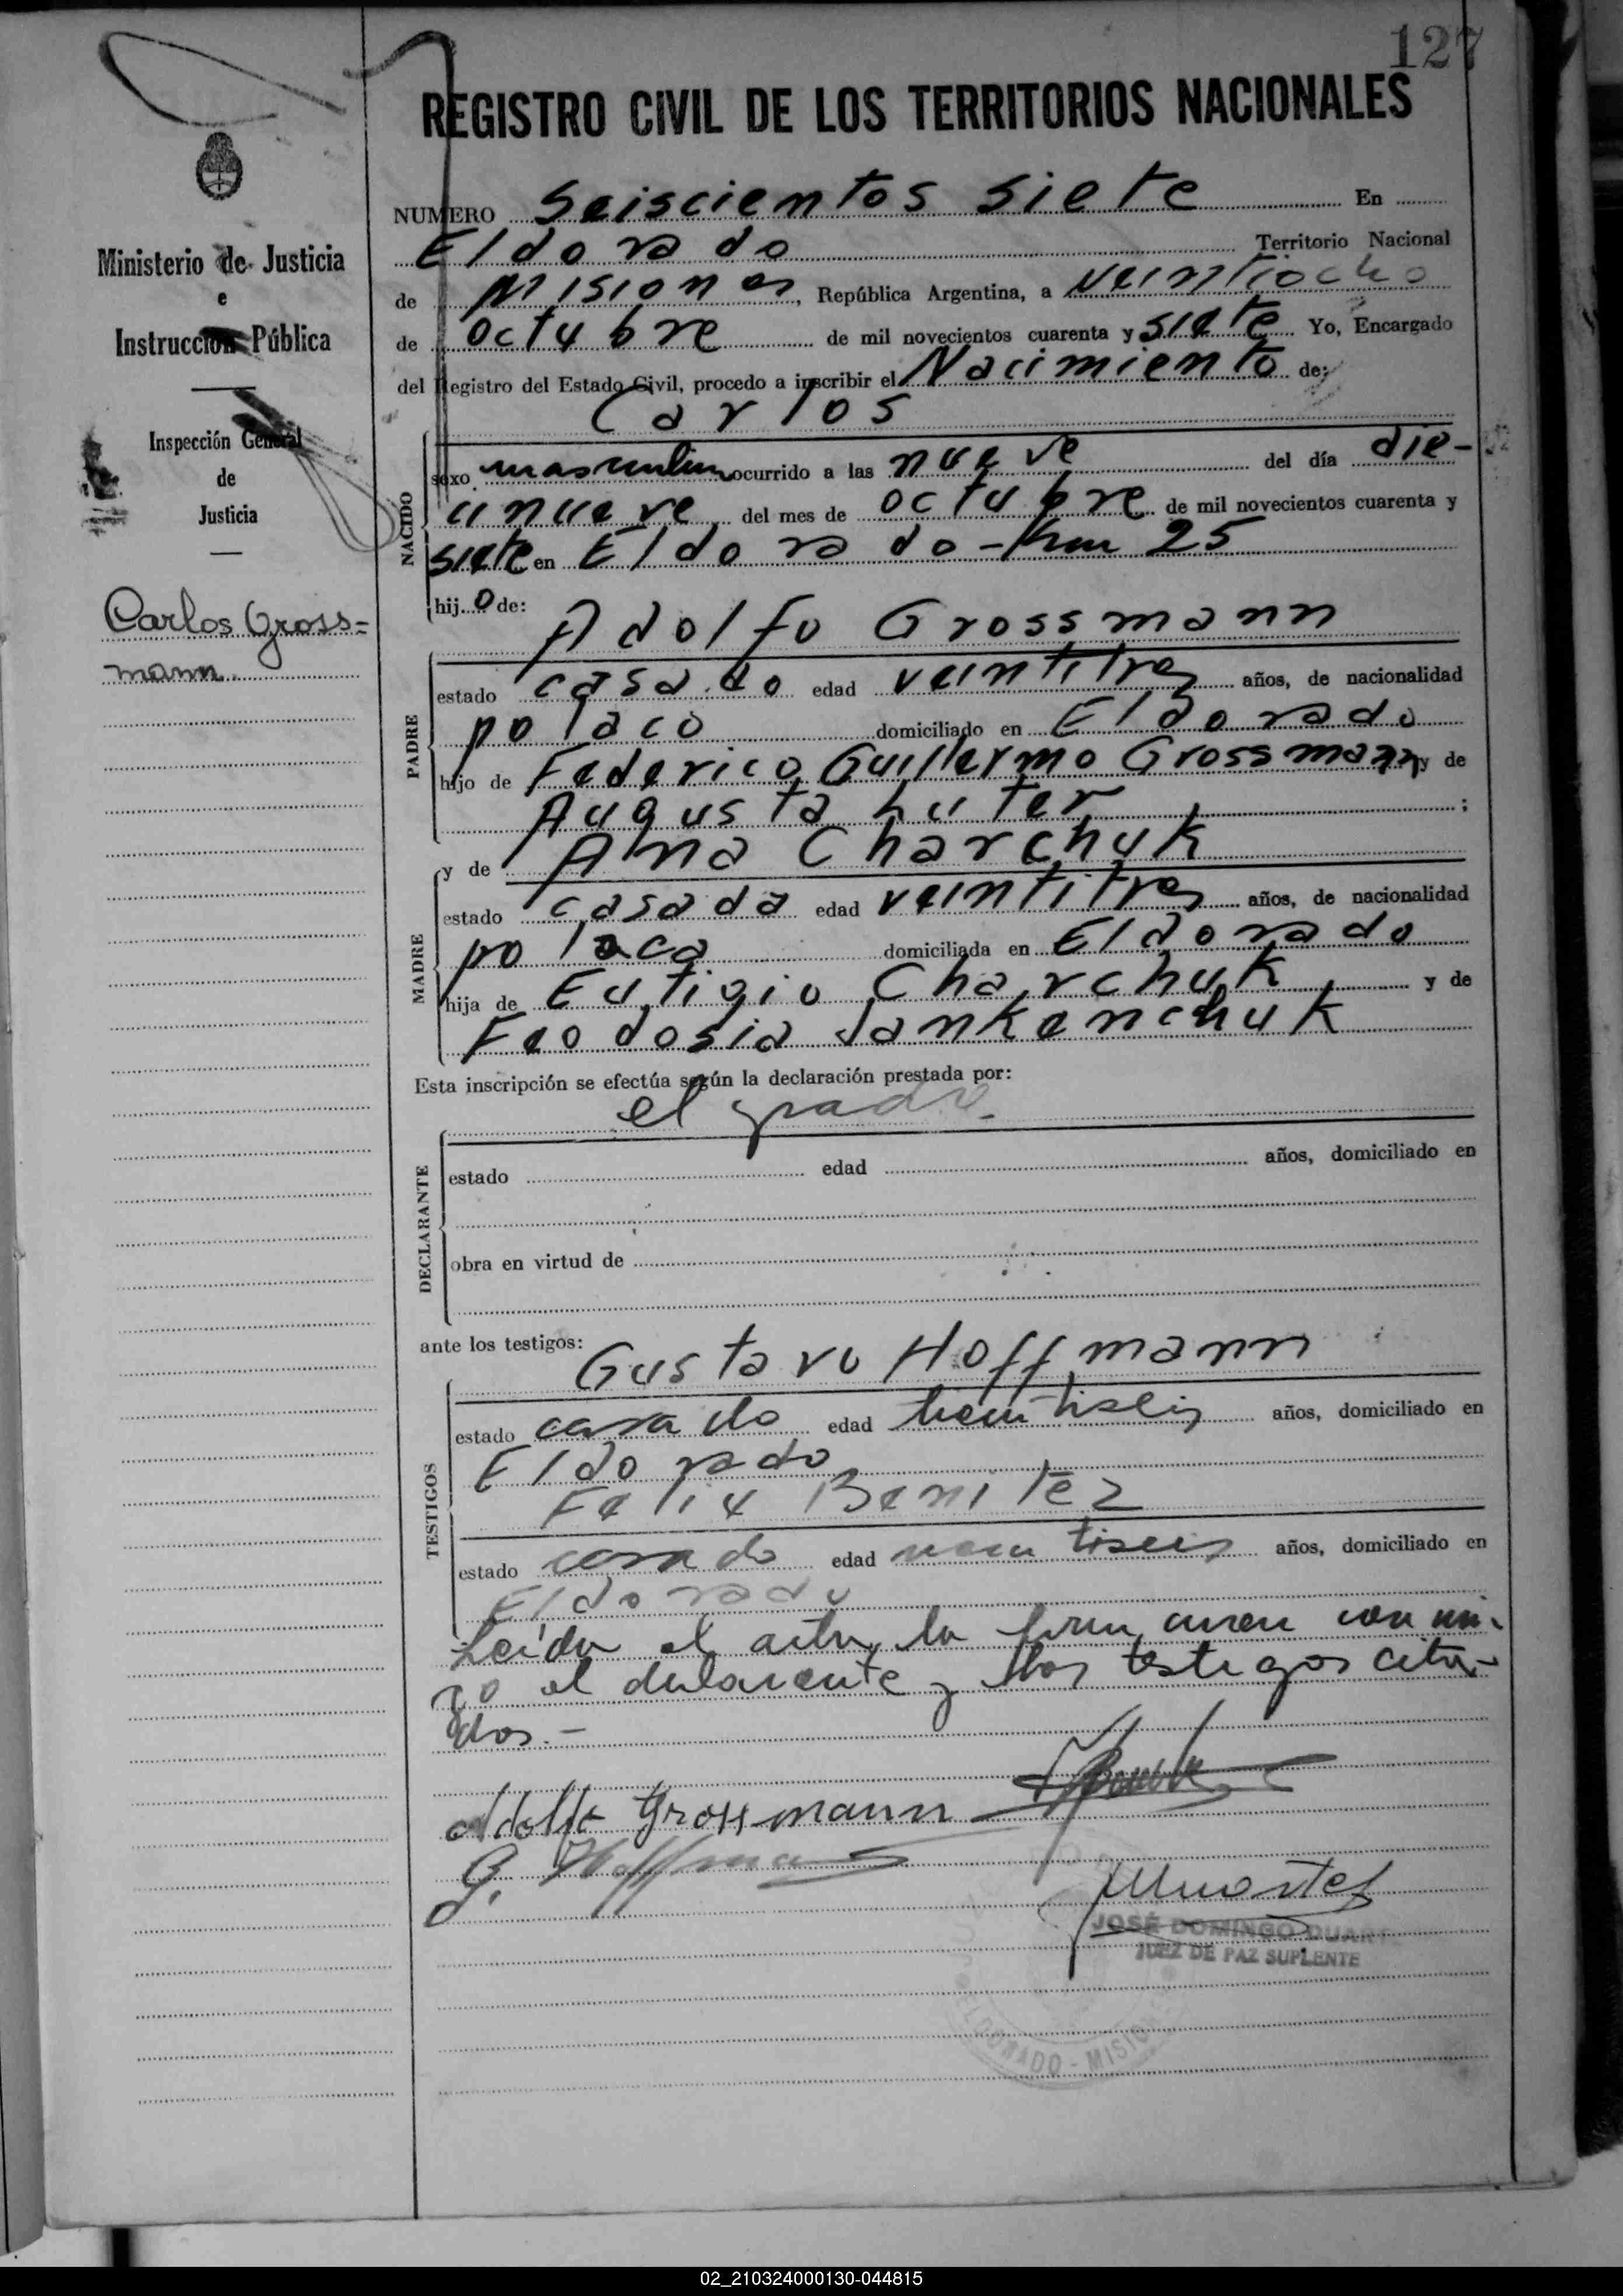 127
REGISTRO CIVIL DE LOS TERRITORIOS NACIONALES
Ministerio de Justicia
e
Instrucción Pública
Inspección General
de
Justicia
Carlos Gross=
mann.
NUMERO Seiscientos siete En
Eldorado Territorio Nacional
de Misiones, República Argentina, a veintiocho
de octubre de mil novecientos cuarenta y siete Yo, Encargado
del Registro del Estado Civil, procedo a inscribir el Nacimiento de:
Carlos
NACIDO
sexo masculino ocurrido a las nueve del día die-
cinueve del mes de octubre de mil novecientos cuarenta y
siete en Eldorado - Km 25
hijo de:
Adolfo Grossmann
PADRE
estado casado edad veintitres años, de nacionalidad
polaco domiciliado en Eldorado
hijo de Federico Guillermo Grossmann y de
Augusta Luter ;
y de Ana Charchuk
MADRE
estado casada edad veintitres años, de nacionalidad
polaca domiciliada en Eldorado
hija de Eutigio Charchuk y de
Feodosia Jankenchuk
Esta inscripción se efectúa según la declaración prestada por:
el padre.
DECLARANTE
estado edad años, domiciliado en
obra en virtud de
ante los testigos:
Gustavo Hoffmann
TESTIGOS
estado casado edad treintiseis años, domiciliado en
Eldorado
Felix Benitez
estado casado edad veintiseis años, domiciliado en
Eldorado
Leída el acta, la firman con mi-
go el declarante y los testigos cita-
dos.-
Adolfo Grossmann
G. Hoffmann
JOSÉ DOMINGO DUARTE
JUEZ DE PAZ SUPLENTE
ELDORADO - MISIONES
02_210324000130-044815